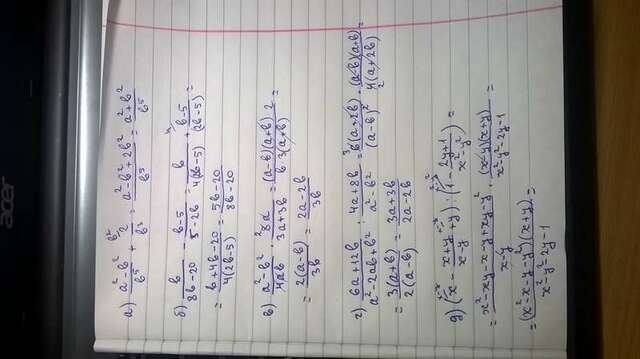 acer
а) (a²-b²)/b⁵ + 2/b³ (b² = (a²-b²+2b²)/b⁵ = (a²+b²)/b⁵
б) b/(8b-20) - (b-5)/(5-2b) = b/(4(2b-5)) + (b-5)/(2b-5) (4 =
= (b+4b-20)/(4(2b-5)) = (5b-20)/(8b-20)
в) (a²-b²)/(4ab) · 8a/(3a+3b) = ((a-b)(a+b)·2)/(b·3(a+b)) =
= 2(a-b)/(3b) = (2a-2b)/(3b)
г) (6a+12b)/(a²-2ab+b²) : (4a+8b)/(a²-b²) = 6(a+2b)/(a-b)² · (a-b)(a+b)/(4(a+2b)) =
= 3(a+b)/(2(a-b)) = (3a+3b)/(2a-2b)
д) (x - (x+y)/(x-y) + y) : (1 - (2y+1)/(x²-y²)) =
= (x²-xy-x-y+xy-y²)/(x-y) · (x-y)(x+y)/(x²-y²-2y-1) =
= (x²-x-y-y²)(x+y)/(x²-y²-2y-1) =